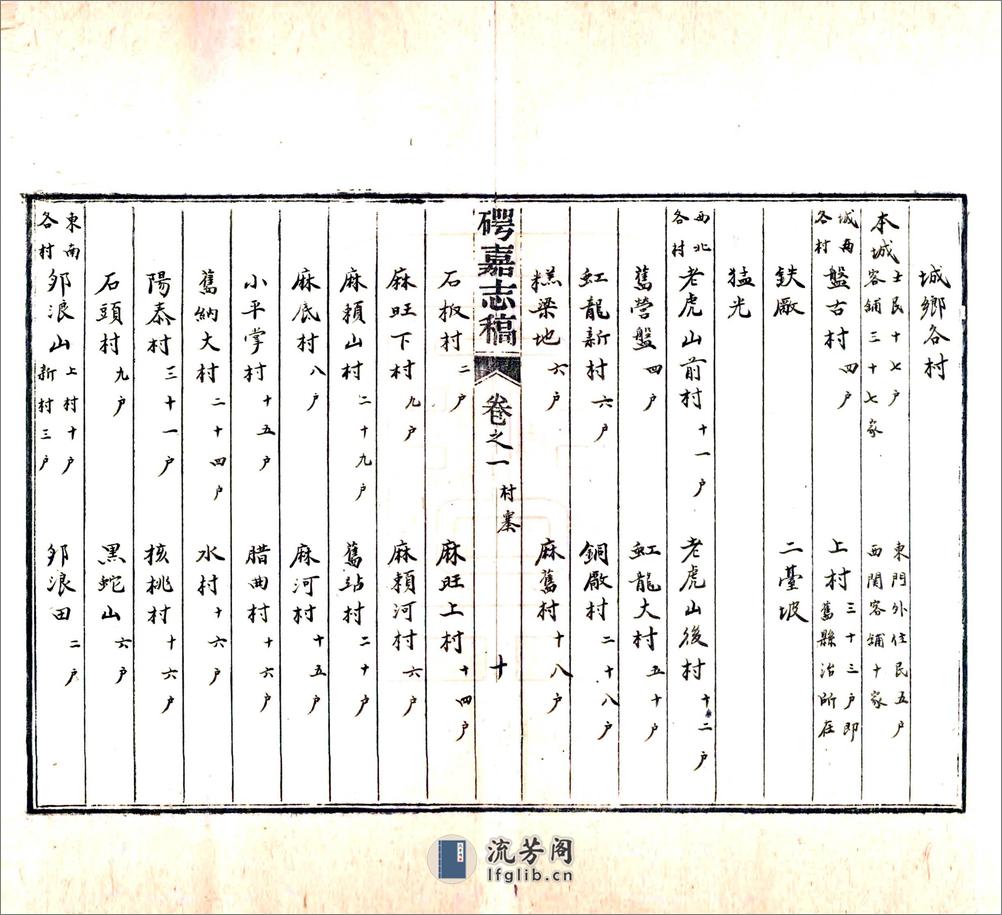 城鄉各村
本城 士民十七戶 客鋪三十七家 東門外住民五戶 西閣客鋪十家
城西各村 盤古村 四戶 上村 三十三戶即舊縣治所在
鉄廠 二臺坡
猛光
西北各村 老虎山前村 十一戶 老虎山後村 十二戶
舊營盤 四戶 虹龍大村 五十戶
虹龍新村 六戶 銅廠村 二十八戶
糕粱地 六戶 麻舊村 十八戶
碍嘉志稿 卷之一 村寨 十
石板村 二戶 麻旺上村 十四戶
麻旺下村 九戶 麻賴河村 六戶
麻賴山村 二十九戶 舊站村 二十戶
麻底村 八戶 麻河村 十五戶
小平掌村 十五戶 腊曲村 十六戶
舊納大村 二十四戶 水村 十六戶
陽泰村 三十一戶 核桃村 十六戶
石頭村 九戶 黑蛇山 六戶
東南各村 邜浪山 上村十戶 新村三戶 邜浪田 二戶
流芳阁
lfglib.cn